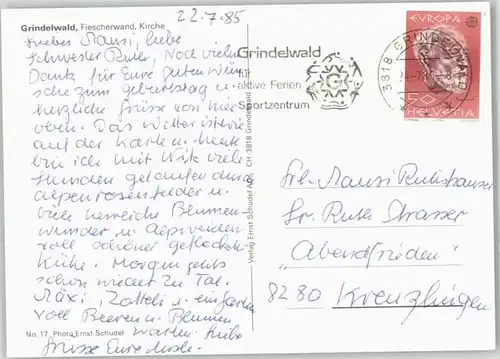 22.7.85
Grindelwald, Fiescherwand, Kirche
Liebes Mausi, liebe
Schwester Ruth, Noch vielen
Dank für Eure guten Wün
sche zum Geburtstag u.
herzliche Grüsse von hier
oben. Das Wetter ist wie
auf der Karte u. heute
bin ich mit viele
Stunden gelaufen durch
Alpenrosenfelder u.
viele herrliche Blumen
wunder u. Alpweiden
voll schöner gefleckter
Kühe. Morgen gehts
schon wieder zu Tal.
Mäxi, Zotteli u. ein Garten
voll Beeren u. Blumen
warten. Liebe
Grüsse Eure
No. 17 Photo Ernst Schudel
Verlag Ernst Schudel AG CH-3818 Grindelwald
Grindelwald
für
aktive Ferien
Sportzentrum
3818 GRINDELWALD
EUROPA
50
HELVETIA
Frl. Mausi Rutishauser
Sr. Ruth Strasser
„Abendfrieden"
8280 Kreuzlingen